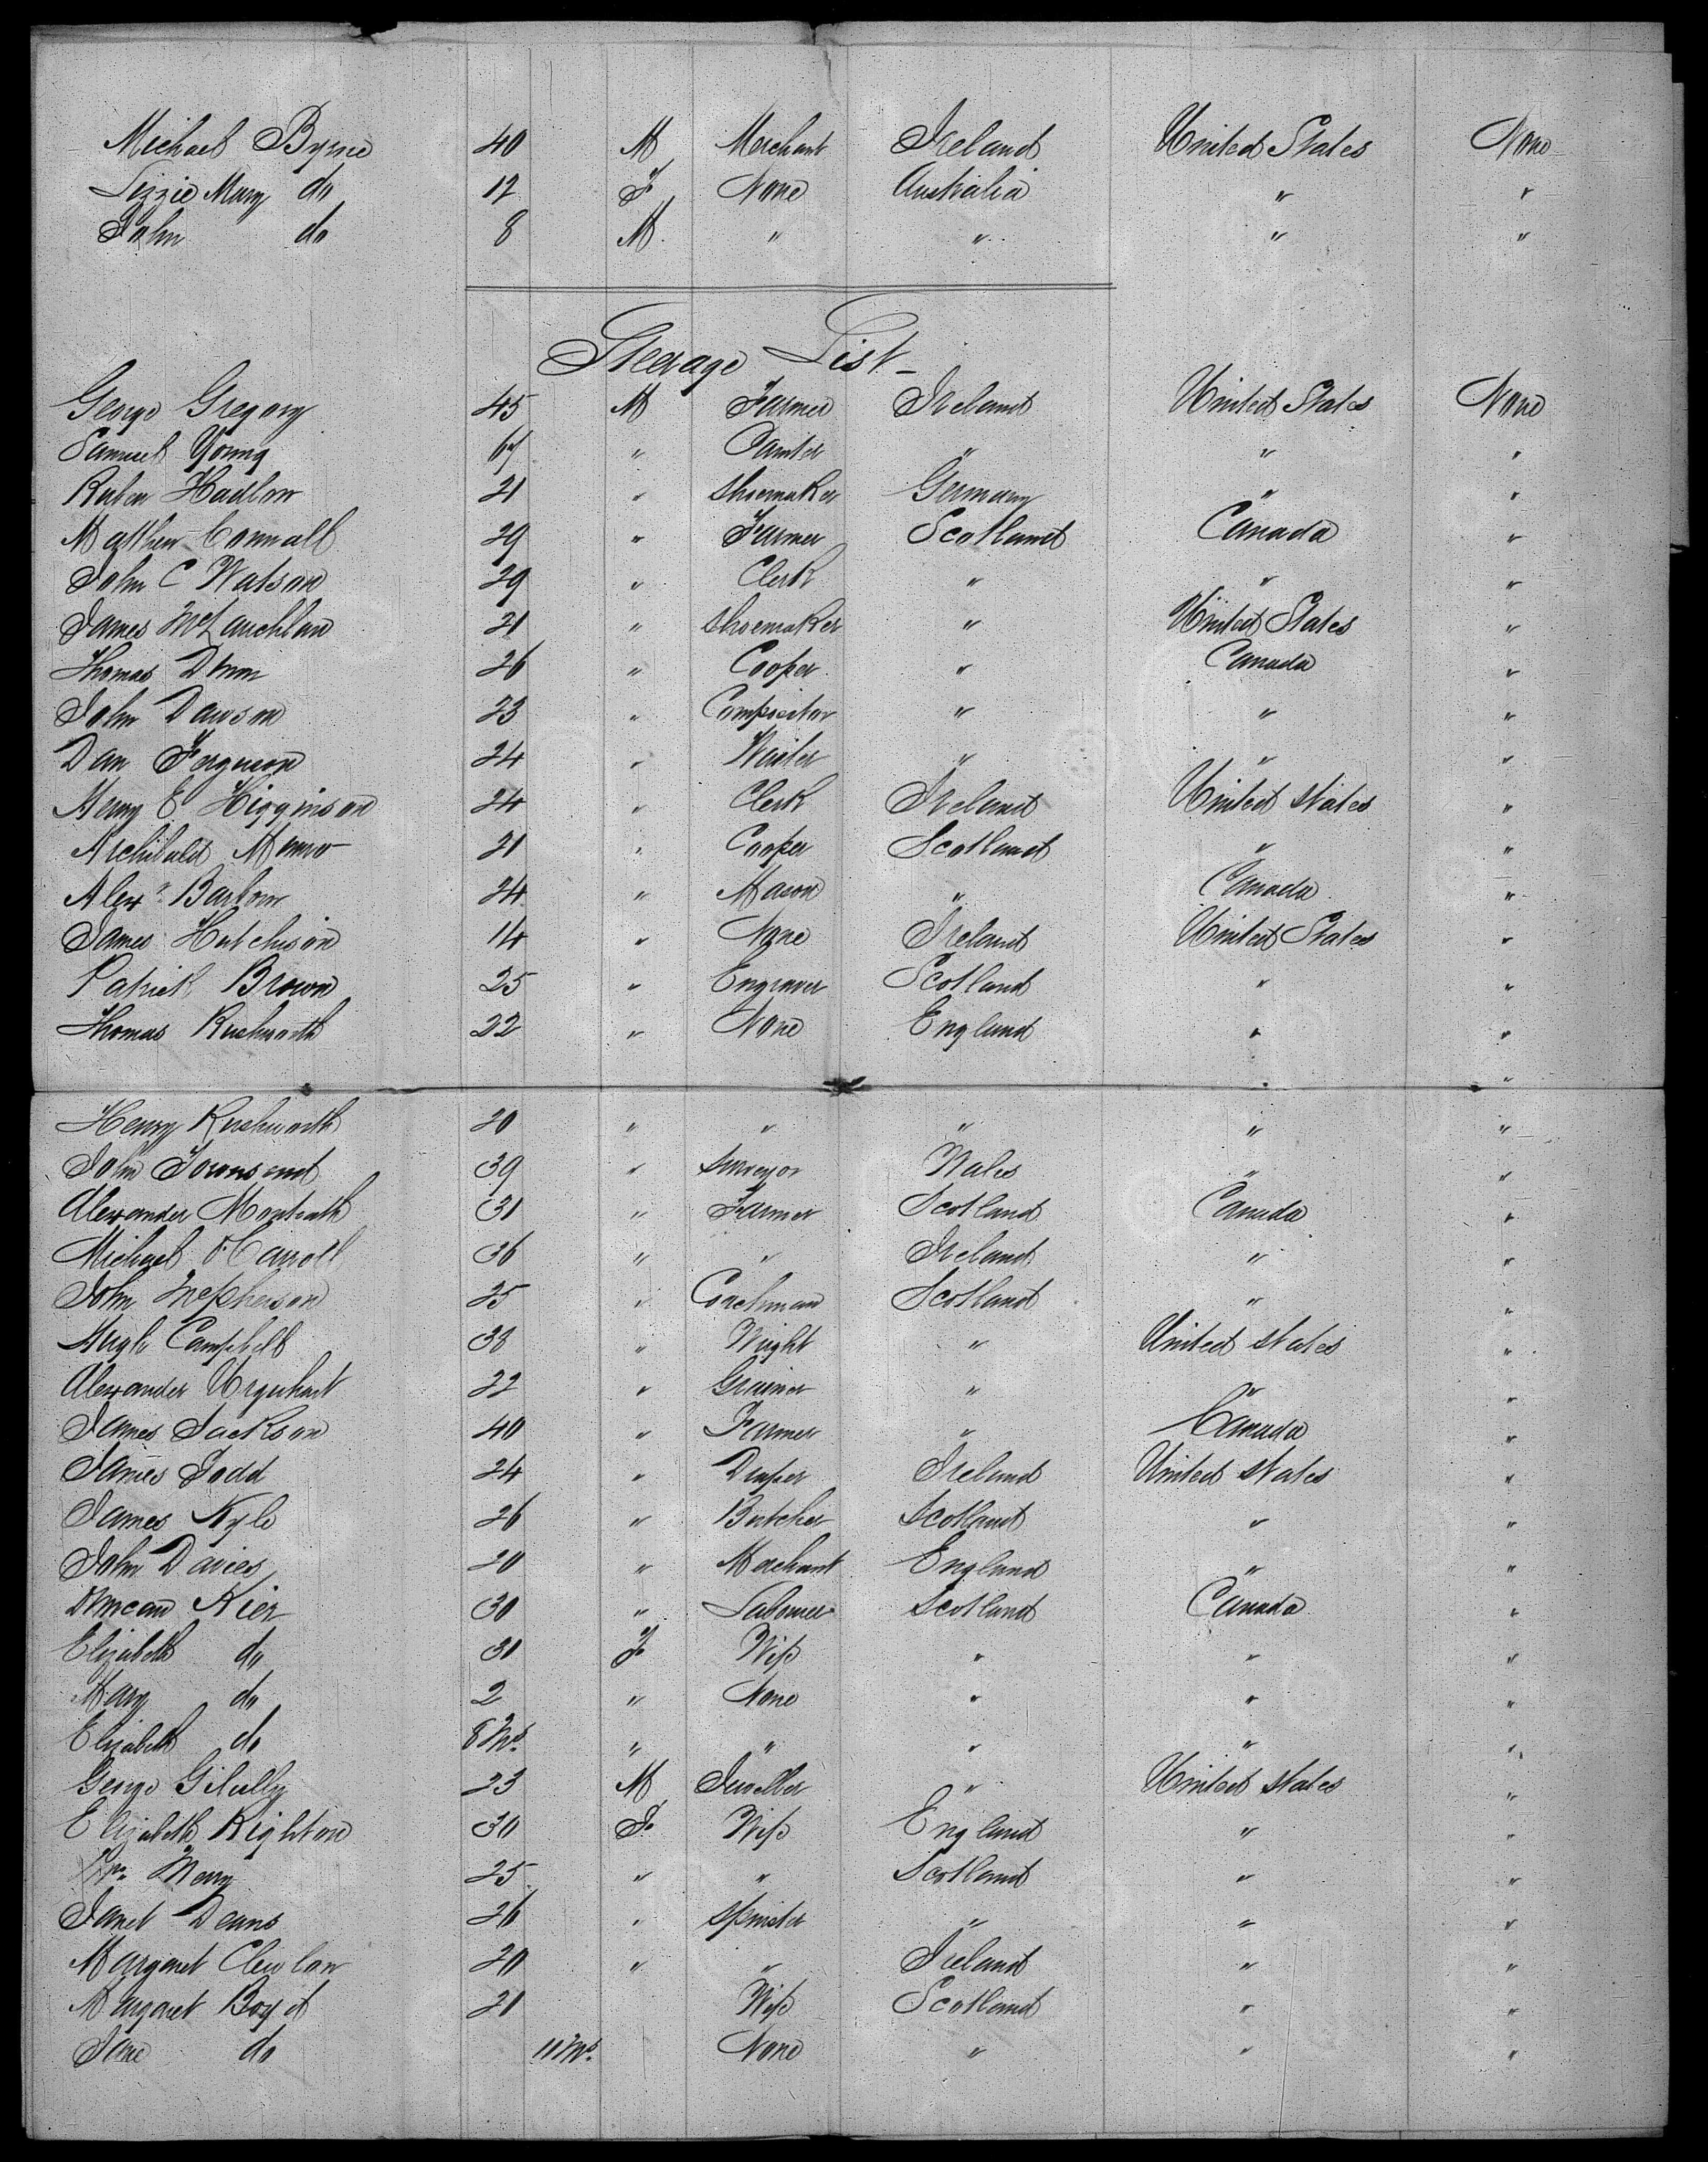 Michael Byrne 40 M Merchant Ireland United States None
Lizzie Mary do 12 F None Australia " "
John do 8 M " " " "
Steerage List
George Gregory 45 M Farmer Ireland United States None
Samuel Young " " " "
Ruben Hadlow 21 " Shoemaker Germany " "
Matthew Connall 29 " Farmer Scotland Canada "
John C Watson 29 " Clerk " " "
James McLauchlan 21 " Shoemaker " United States "
Thomas Dunn 26 " Cooper " Canada "
John Dawson 23 " Compositor " " "
Dan Ferguson 24 " Waiter " " "
Henry E Higginson 24 " Clerk Ireland United States "
Archibald Munro 21 " Cooper Scotland " "
Alexr Barlow 24 " Mason " Canada "
James Hutchison 14 " None Ireland United States "
Patrick Brown 25 " Engraver Scotland " "
Thomas Rushworth 22 " None England " "
"
Henry Rushworth 20 " " " " "
John Townsend 39 " Surveyor Wales " "
Alexander Monteath 31 " Farmer Scotland Canada "
Michael O'Carroll 36 " " Ireland " "
John McPherson 25 " Coachman Scotland " "
Hugh Campbell 38 " Wright " United States "
Alexander Urquhart 22 " Grainer " " "
James Jackson 40 " Farmer " Canada "
James Todd 24 " Draper Ireland United States "
James Kyle 26 " Butcher Scotland " "
John Davies 20 " Merchant England " "
Duncan Kier 30 " Labourer Scotland Canada "
Elizabeth do 30 F Wife " " "
Mary do 2 " None " " "
Elizabeth do 8 Ms " " " " "
George Gilully 23 M Jeweller " United States "
Elizabeth Righton 30 F Wife England " "
Mrs 25 " " Scotland " "
Janet Deans 26 " Spinster " " "
Margaret Clewlow 20 " " Ireland " "
Margaret Boyd 21 Wife Scotland " "
Jane do 11 Ms None " " "